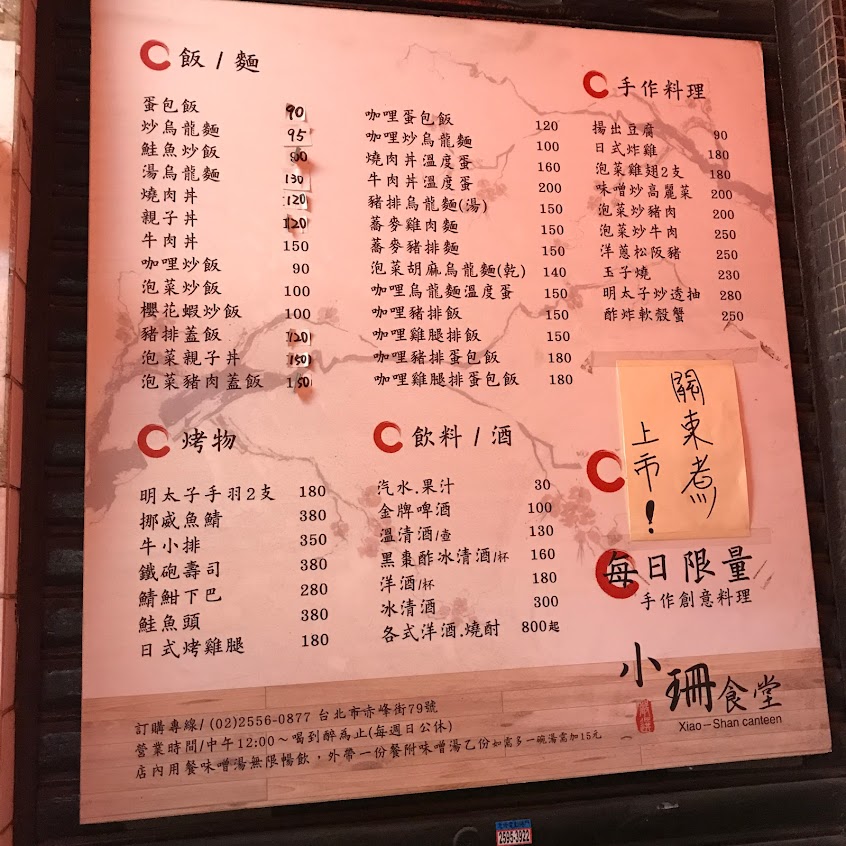 飯 / 麵
蛋包飯 90
炒烏龍麵 95
鮭魚炒飯
湯烏龍麵 130
燒肉丼 120
親子丼 120
牛肉丼 150
咖哩炒飯 90
泡菜炒飯 100
櫻花蝦炒飯 100
豬排蓋飯 120
泡菜親子丼 150
泡菜豬肉蓋飯 150
咖哩蛋包飯 120
咖哩炒烏龍麵 100
燒肉丼溫度蛋 160
牛肉丼溫度蛋 200
豬排烏龍麵(湯) 150
蕎麥雞肉麵 150
蕎麥豬排麵 150
泡菜胡麻烏龍麵(乾) 140
咖哩烏龍麵溫度蛋 150
咖哩豬排飯 150
咖哩雞腿排飯 150
咖哩豬排蛋包飯 180
咖哩雞腿排蛋包飯 180
手作料理
揚出豆腐 90
日式炸雞 180
泡菜雞翅2支 180
味噌炒高麗菜 200
泡菜炒豬肉 200
泡菜炒牛肉 250
洋蔥松阪豬 250
玉子燒 230
明太子炒透抽 280
酢炸軟殼蟹 250
烤物
明太子手羽2支 180
挪威魚鯖 380
牛小排 350
鐵砲壽司 380
鯖魽下巴 280
鮭魚頭 380
日式烤雞腿 180
飲料 / 酒
汽水.果汁 30
金牌啤酒 100
溫清酒/壺 130
黑棗酢冰清酒/杯 160
洋酒/杯 180
冰清酒 300
各式洋酒.燒酎 800起
關東煮
上市！
每日限量
手作創意料理
小珊食堂
Xiao-Shan canteen
訂購專線/ (02)2556-0877 台北市赤峰街79號
營業時間/中午12:00～喝到醉為止(每週日公休)
店內用餐味噌湯無限暢飲，外帶一份餐附味噌湯乙份如需多一碗湯需加15元
2595-3922